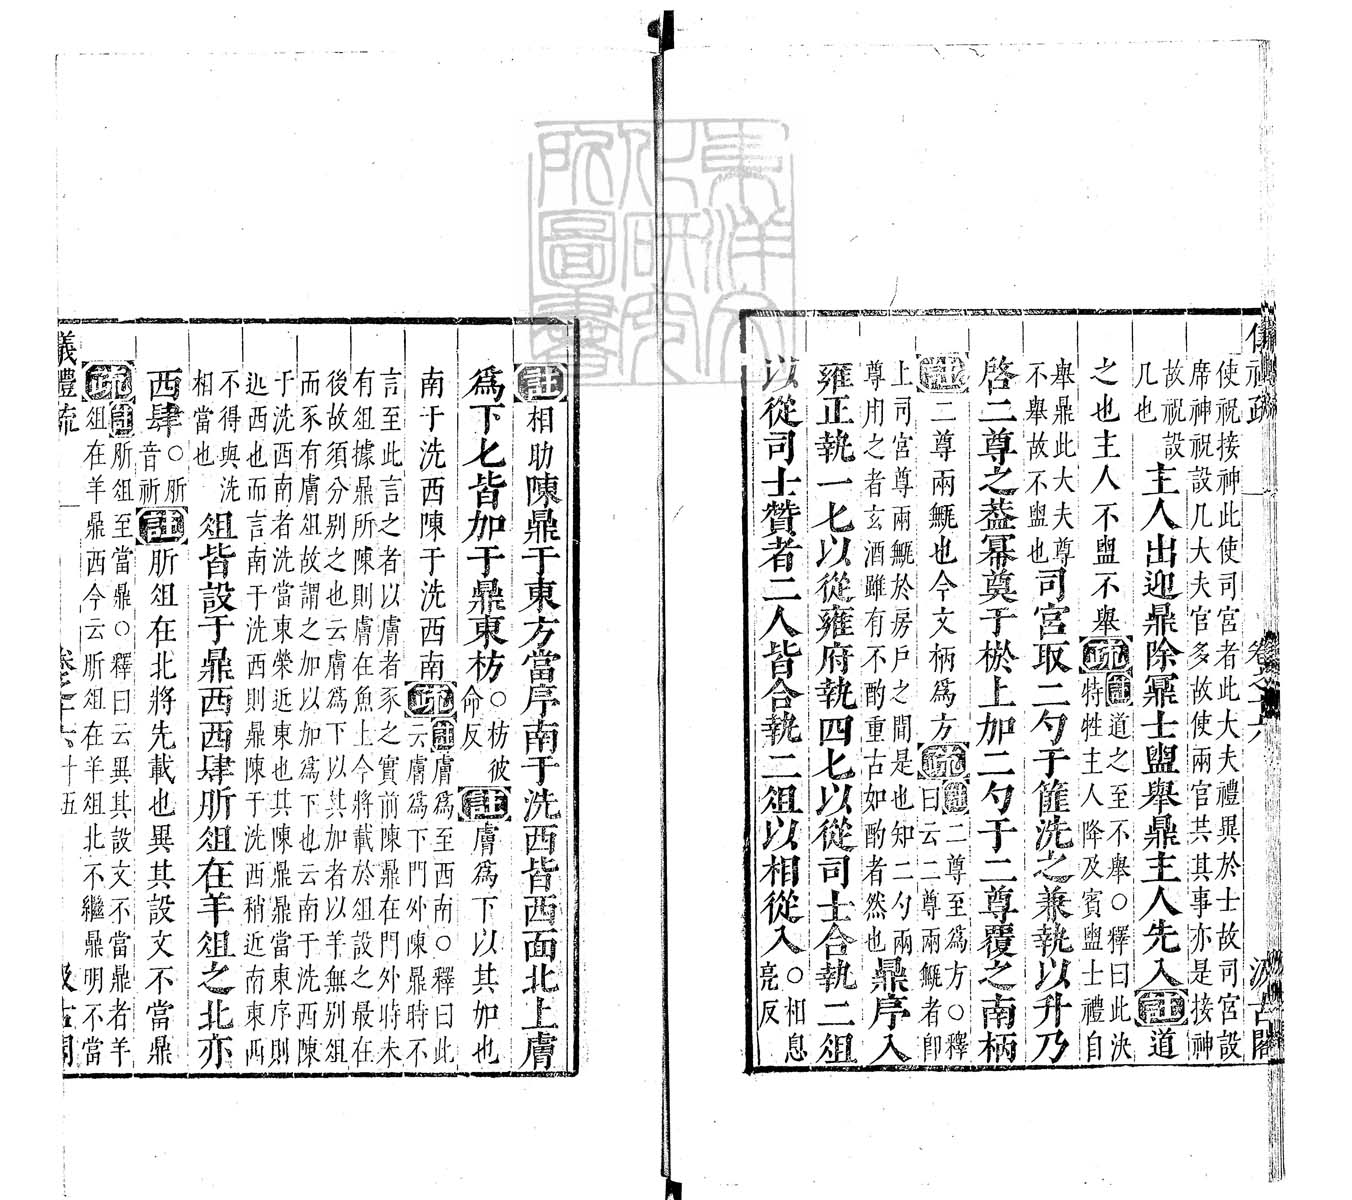 使祝接神此使司宮者此大夫禮異於士故司宮設
席神祝設几大夫官多故使兩官共其事亦是接神
故祝設
几也
主人出迎鼎除鼏士盥舉鼎主人先入
註
道
之也主人不盥不舉
疏
註
道之至不舉○釋曰此決
特牲主人降及賓盥士禮自
舉鼎此大夫尊
不舉故不盥也
司宮取二勺于篚洗之兼執以升乃
啓二尊之蓋冪奠于棜上加二勺于二尊覆之南柄
註
二尊兩甒也今文柄爲方
疏
註
二尊至爲方○釋
曰云二尊兩甒者即
上司宮尊兩甒於房戶之間是也知二勺兩
尊用之者玄酒雖有不酌重古如酌者然也
鼎序入
雍正執一匕以從雍府執四匕以從司士合執二俎
以從司士贊者二人皆合執二俎以相從入
○相息
亮反
註
相助
陳鼎于東方當序南于洗西皆西面北上膚
爲下匕皆加于鼎東枋
○枋彼
命反
註
膚爲下以其加也
南于洗西陳于洗西南
疏
註
膚爲至西南○釋曰此
云膚爲下門外陳鼎時不
言至此言之者以膚者豕之實前陳鼎在門外時未
有俎據鼎所陳則膚在魚上今將載於俎設之最在
後故須分别之也云膚爲下以其加者以羊無别俎
而豕有膚俎故謂之加以加爲下也云南于洗西陳
于洗西南者洗當東榮近東也其陳鼎鼎當東序則
迆西也而言南于洗西則鼎陳于洗西稍近南東西
不得與洗
相當也
俎皆設于鼎西西肆肵俎在羊俎之北亦
西肆
○肵
音祈
註
肵俎在北將先載也異其設文不當鼎
疏
註
肵俎至當鼎○釋曰云異其設文不當鼎者羊
俎在羊鼎西今云肵俎在羊俎北不繼鼎明不當
儀禮疏
卷之十六
十五
汲古閣